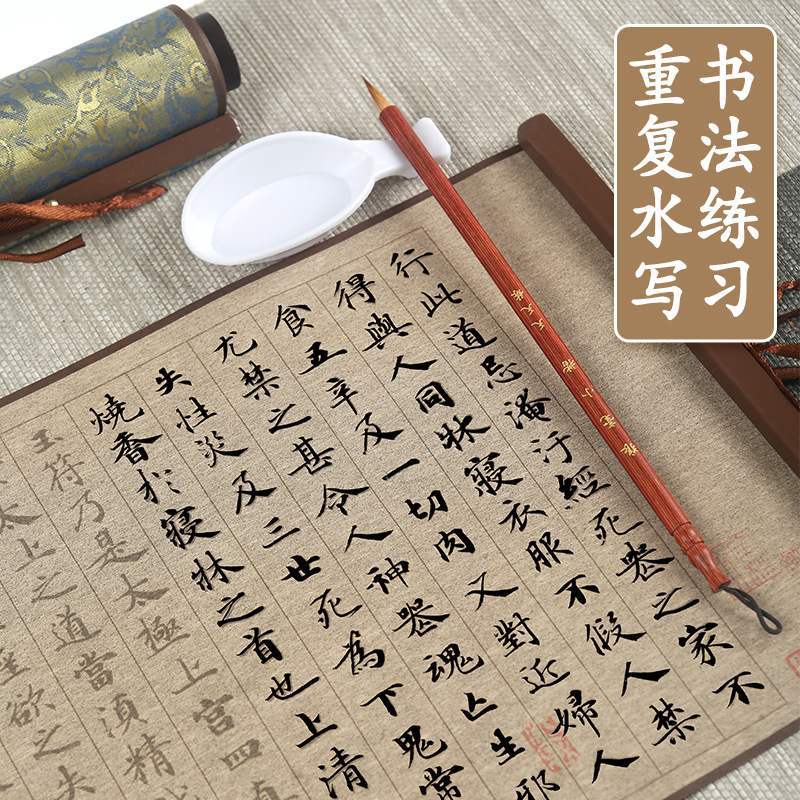 书法练习
重复水写
行此道忌淹汙經死喪之家不
得與人同牀寢衣服不假人禁
食五辛及一切肉又對近婦人
尤禁之甚令人神喪魂亡生邪
失性災及三世死為下鬼常
燒香於寢牀之首也上清
玉符乃是太極上宮四
太上之道當湏精
欲之失